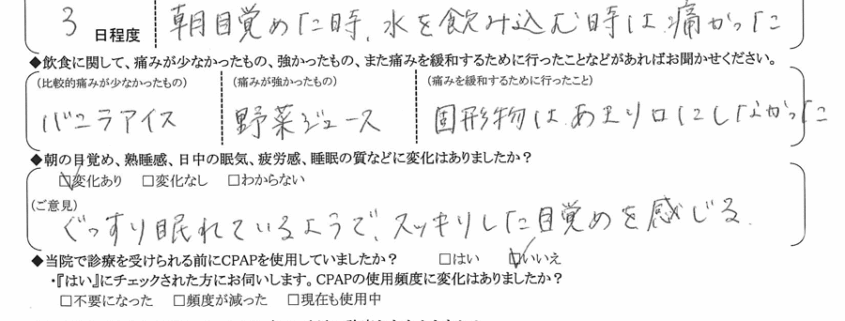 3 日程度 朝目覚めた時、水を飲み込む時は痛かった
◆飲食に関して、痛みが少なかったもの、強かったもの、また痛みを緩和するために行ったことなどがあればお聞かせください。
(比較的痛みが少なかったもの) (痛みが強かったもの) (痛みを緩和するために行ったこと)
バニラアイス 野菜ジュース 固形物はあまり口にしなかった
◆朝の目覚め、熟睡感、日中の眠気、疲労感、睡眠の質などに変化はありましたか?
☑変化あり □変化なし □わからない
(ご意見)
ぐっすり眠れているようで、スッキリした目覚めを感じる.
◆当院で診療を受けられる前にCPAPを使用していましたか? □はい ☑いいえ
・『はい』にチェックされた方にお伺いします。CPAPの使用頻度に変化はありましたか?
□不要になった □頻度が減った □現在も使用中